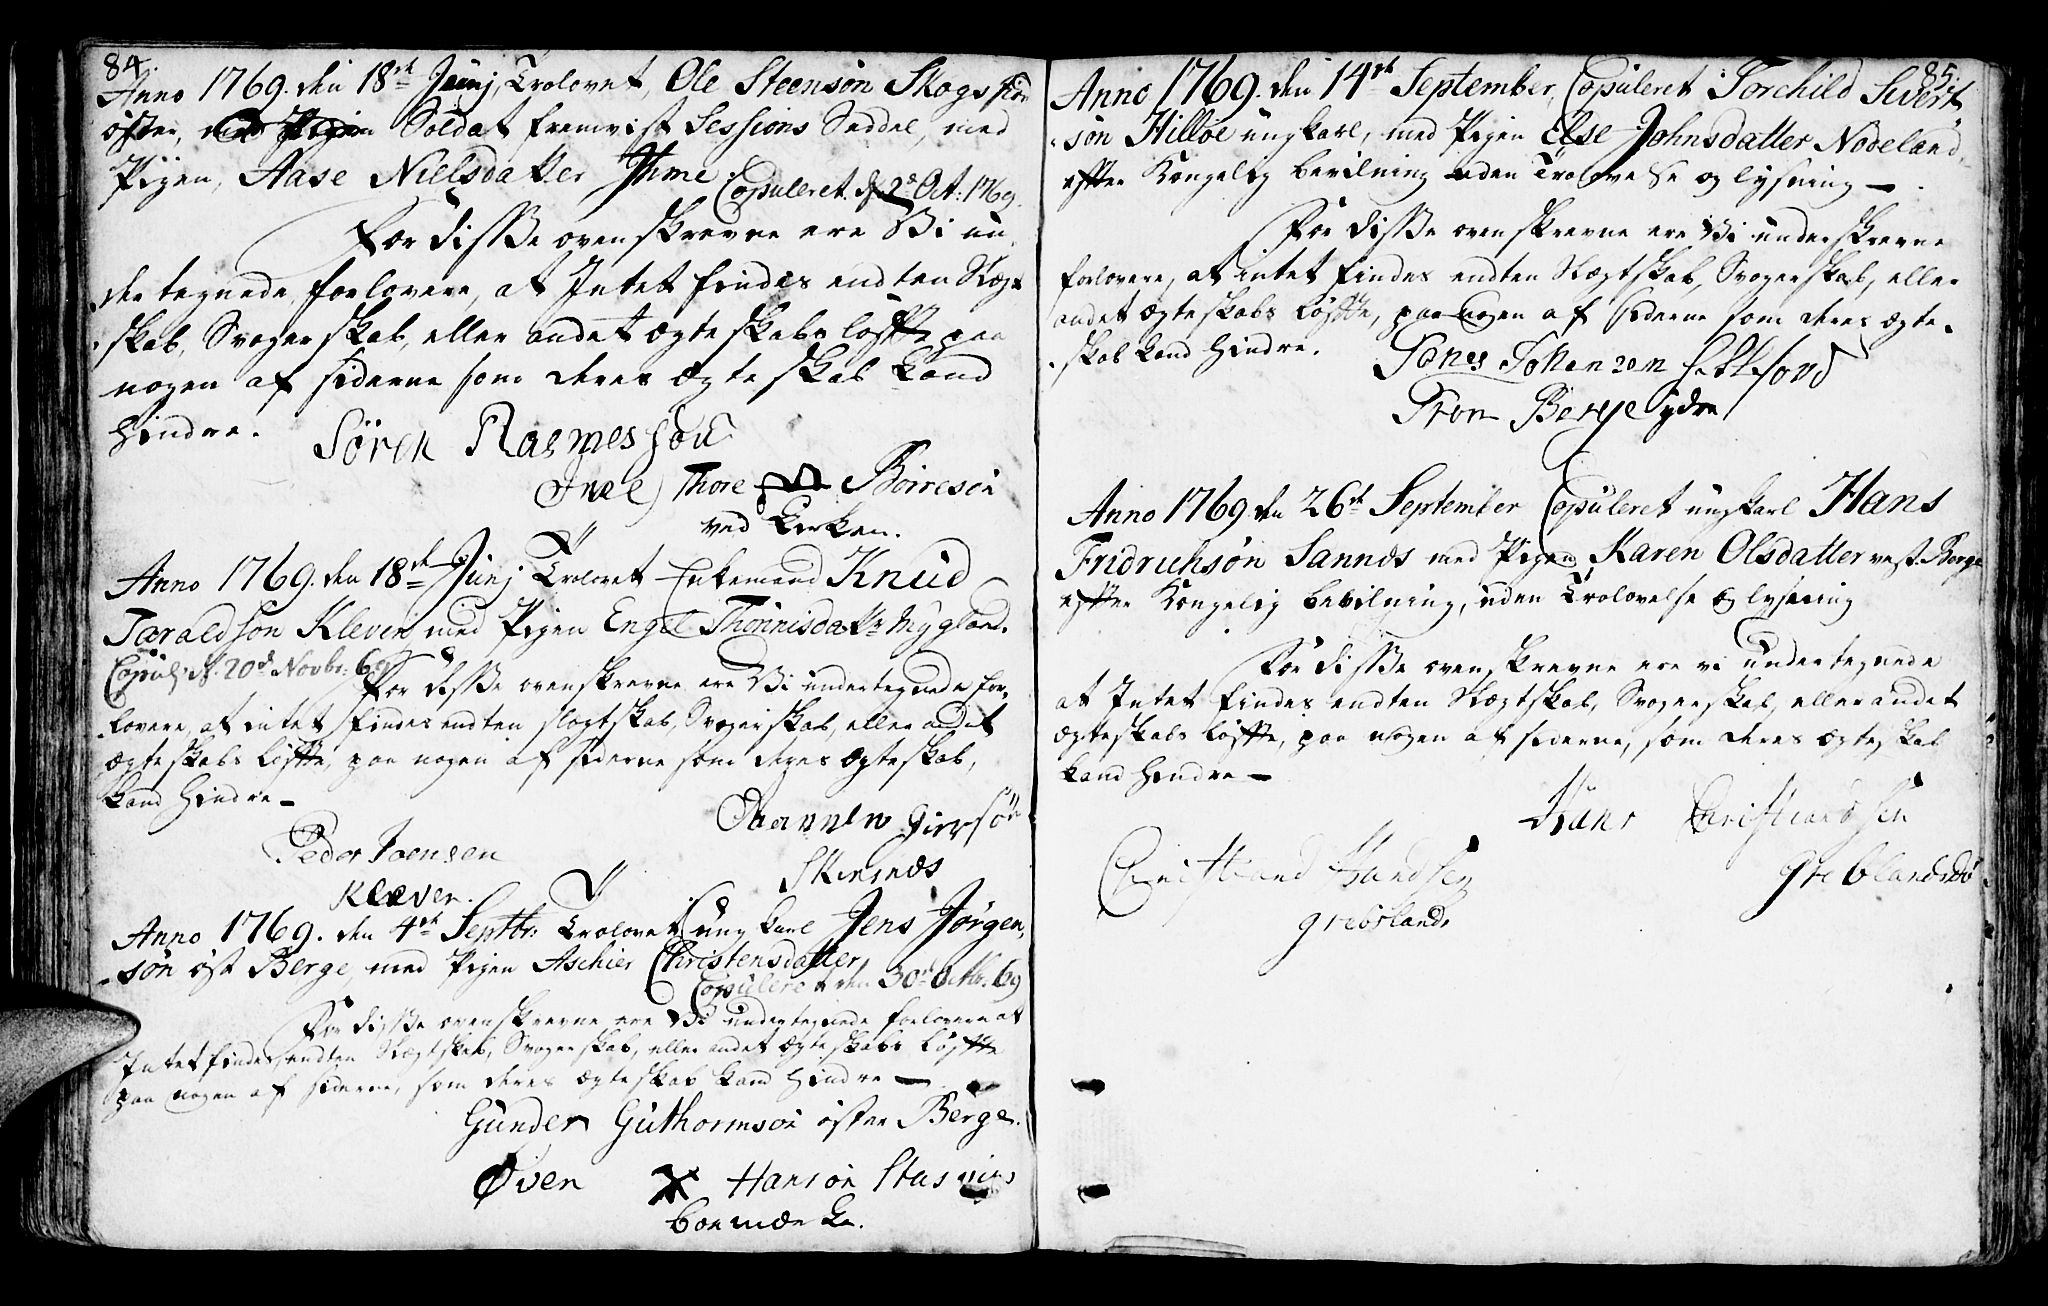 84.
Anno 1769. den 18de Junj, Trolovet, Ole Steensøn Skogsfior
øster, Soldat fremvist Sessions Seddel, med
Pigen, Aase Nielsdatter Ihme.
Copuleret d. 2de Oct: 1769.
For disse ovenskrevne ere Vi un¬
der tegnede forlovere, at Intet findes endten Slægt
skab, Svogerskab, eller andet ægteskabs løffte paa
nogen af siderne som deres ægteskab kand
hindre.
Søren Rasmesson
Thore Børresøn
ved Kirken.
Anno 1769. den 18de Junj Trolovet Enkemand Knud
Taraldsøn Kleven med Pigen Engel Thønnisdatr Mygland.
Copul. d. 20de Novbr: 69
For disse ovenskrevne ere Vi undertegnede for¬
lovere, at intet findes endten slægtskab, Svogerskab, eller andet
ægteskabs løffte, paa nogen af siderne som deres ægteskab,
kand hindre –
Peder Joensen
Kleven.
Giersøn
Skinsnes
Anno 1769. den 4de Septbr: Trolovet ung karl Jens Jørgen¬
søn øst Berge, med Pigen Aschier Christensdatter
Copuleret den 30te Octbr. 69
For disse ovenskrevne ere Vi undertegnede forlovere at
Intet findes endten Slægtskab, Svogerskab, eller andet ægteskabs løffte
paa nogen af siderne, som deres ægteskab kand hindre –
Gunder Guthormsøn øster Berge.
Øven X Hansøn Stusnius
boemærke.
85.
Anno 1769. den 14de September, Copuleret Torchild Sivert
søn Hilløe ungkarl, med Pigen Else Johnsdatter Nodeland,
effter Kongelig bevilning uden Trolovelse og lysning –
For disse ovenskrevne ere Vi underskrevne
forlovere, at intet findes endten Slægtskab, Svogerskab, eller
andet ægteskabs løffte, paa nogen af siderne som deres ægte¬
skab kand hindre.
Tønes Johanzøn
Tron Berge ydre
Anno 1769 den 26de September Copuleret ungkarl Hans
Fridrichsøn Sannes med Pigen Karen Olsdatter vest. Berge
effter Kongelig bevilning, uden Trolovelse og lysning
For disse ovenskrevne ere vi undertegnede
at Intet findes endten Slægtskab, Svogerskab, eller andet
ægteskabs løffte, paa nogen af siderne, som deres ægteskab
kand hindre –
Hans Christiandsen
Greblandsdø
Christiand Handsen
grebsland